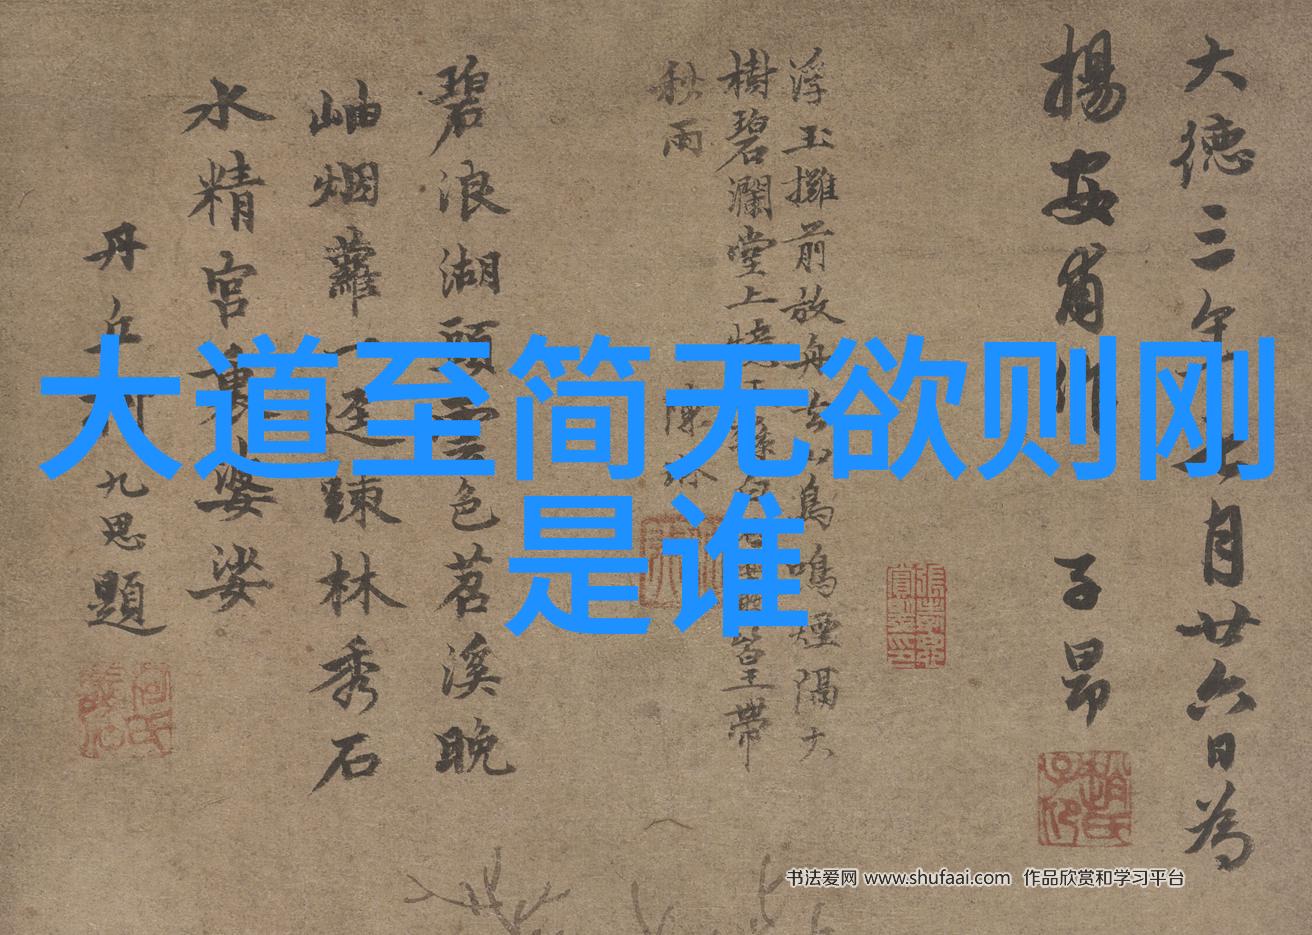 大德三年
月廿六日為
揚安甫作
子昂
浮玉攤前放舟去山鳥鳴煙隔大
樹碧瀾堂上
皇帶
秋雨
陳琳
碧浪湖頭雲色苕溪晚
岫烟蘿一逕疎林秀石
水精宮裏婆娑
丹丘柯九思題
大道至简无欲则刚
是谁
书法爱网 www.shufaai.com 作品欣赏和学习平台